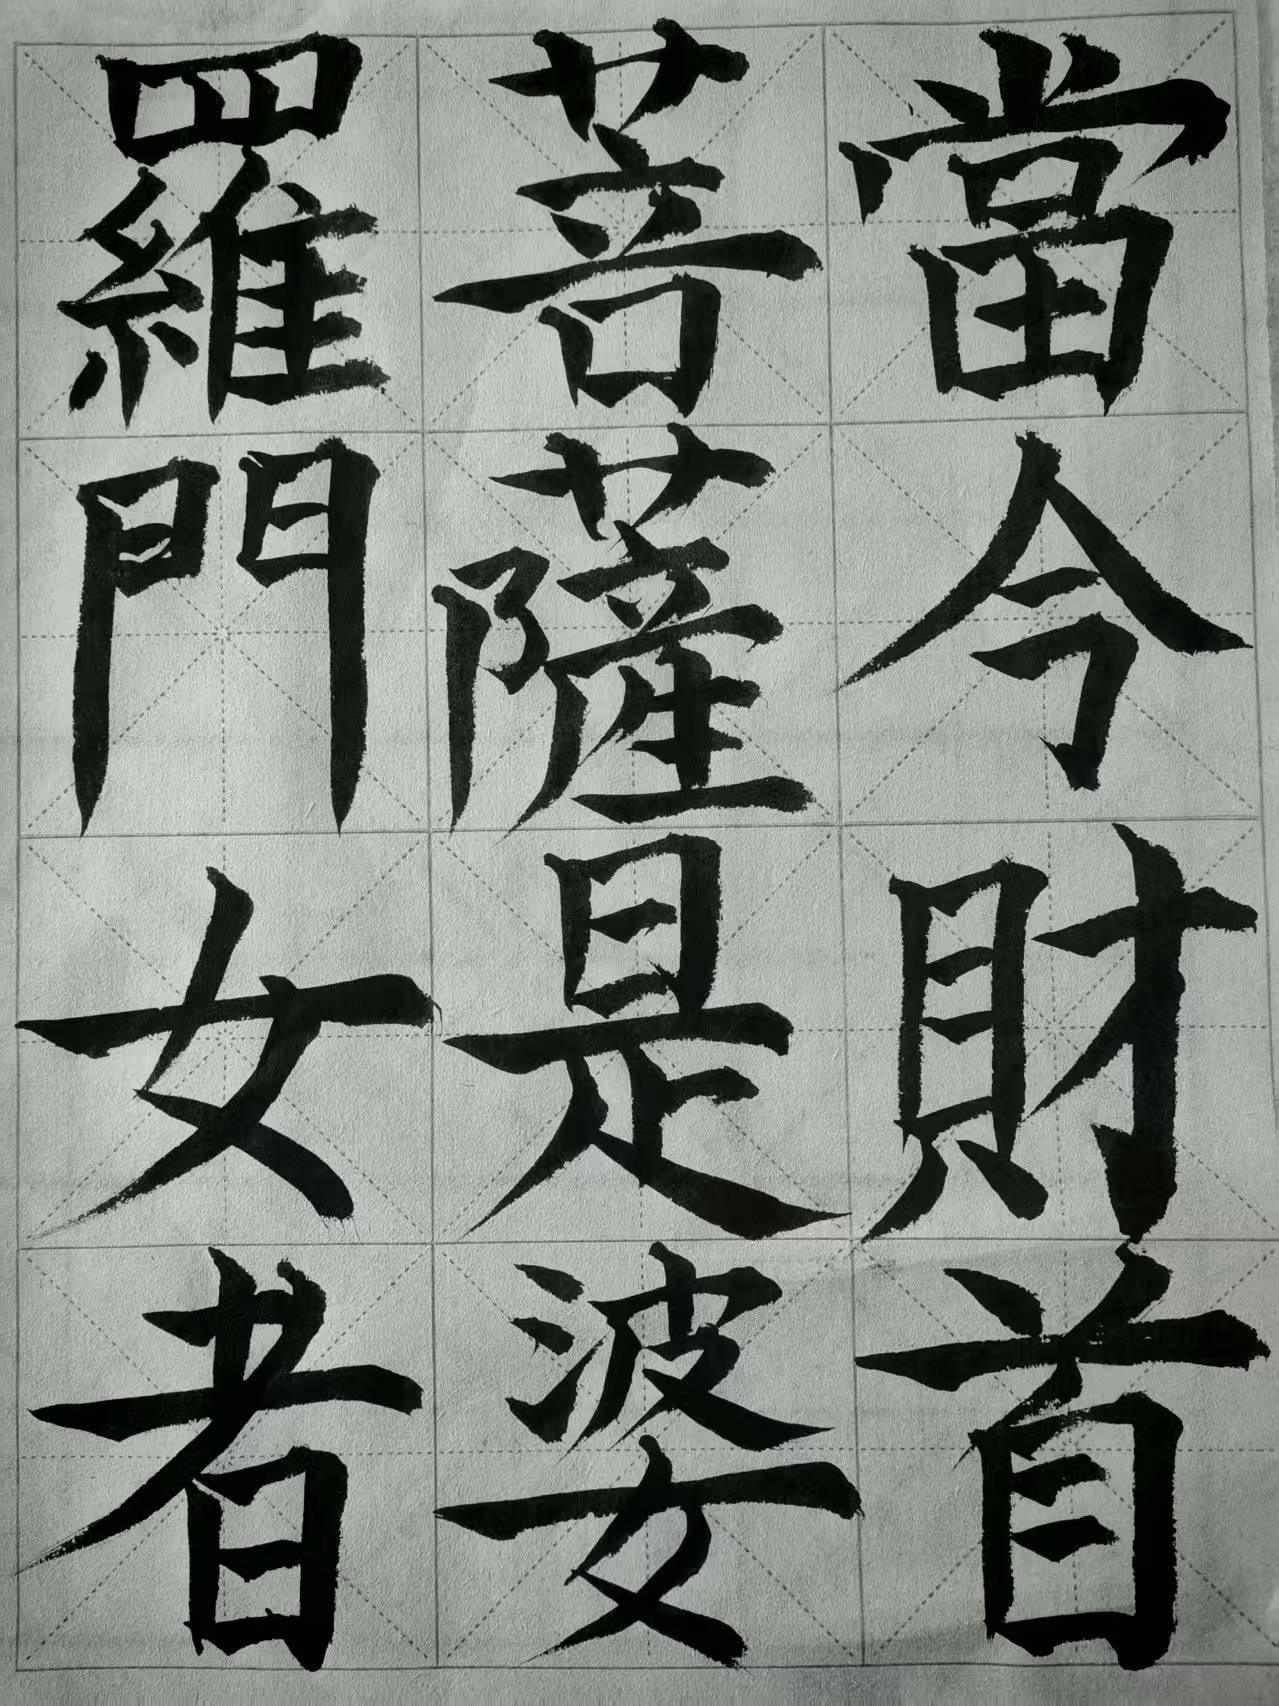 當今財首
菩薩是婆
羅門女者